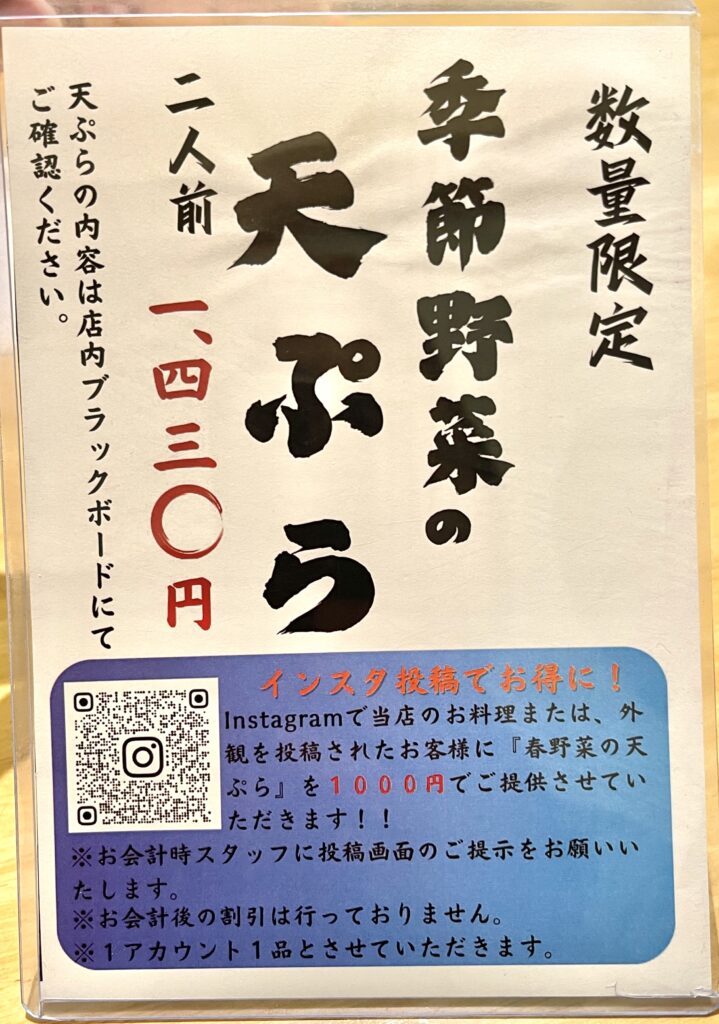 数量限定
季節野菜の
天ぷら
二人前 一、四三〇円
天ぷらの内容は店内ブラックボードにて
ご確認ください。
インスタ投稿でお得に！
Instagramで当店のお料理または、外
観を投稿されたお客様に『春野菜の天
ぷら』を１０００円でご提供させてい
ただきます！！
※お会計時スタッフに投稿画面のご提示をお願いい
たします。
※お会計後の割引は行っておりません。
※１アカウント１品とさせていただきます。